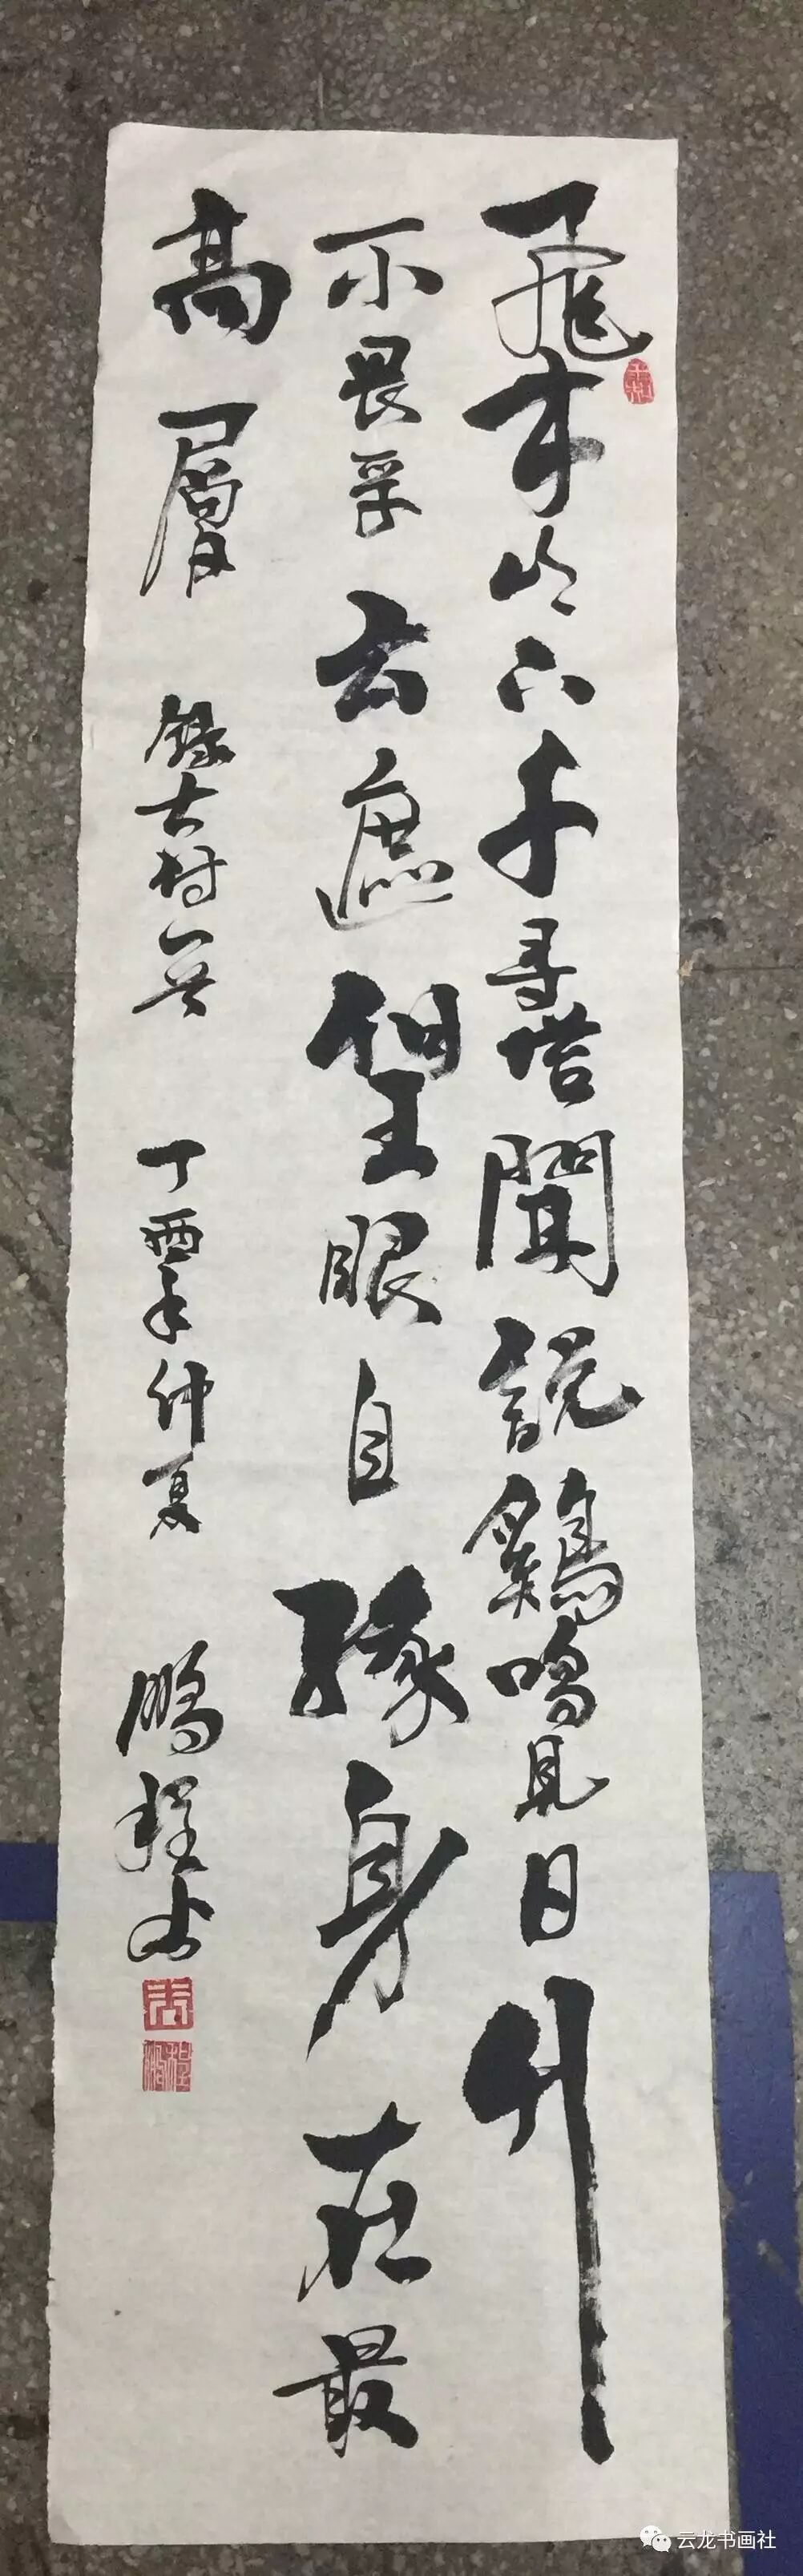 飛来山下千尋塔聞説鷄鳴見日升
不畏浮云遮望眼自緣身在最
高層 錄古诗一首 丁酉年仲夏 鵬程书
云龙书画社